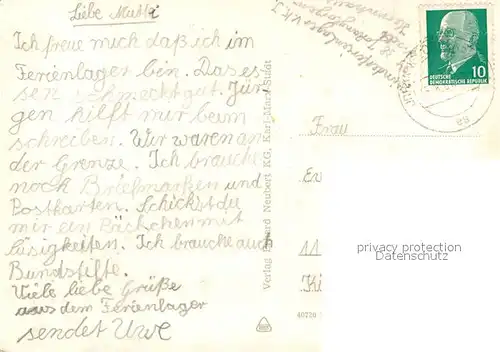 Liebe Mutti
Ich freue mich daß ich im
Ferienlager bin. Das es-
sen schmeckt gut. Jür-
gen hilft mir beim
schreiben. Wir waren an
der Grenze. Ich brauche
noch Briefmarken und
Postkarten. Schickst du
mir ein Päckchen mit
Süsigkeiten. Ich brauche auch
Bundstifte.
Viele liebe Grüße
aus dem Ferienlager
sendet Uwe
Verlag Neubert KG, Karl-Marx-Stadt
10
DEUTSCHE
DEMOKRATISCHE REPUBLIK
Frau
privacy protection
Datenschutz
11
40720